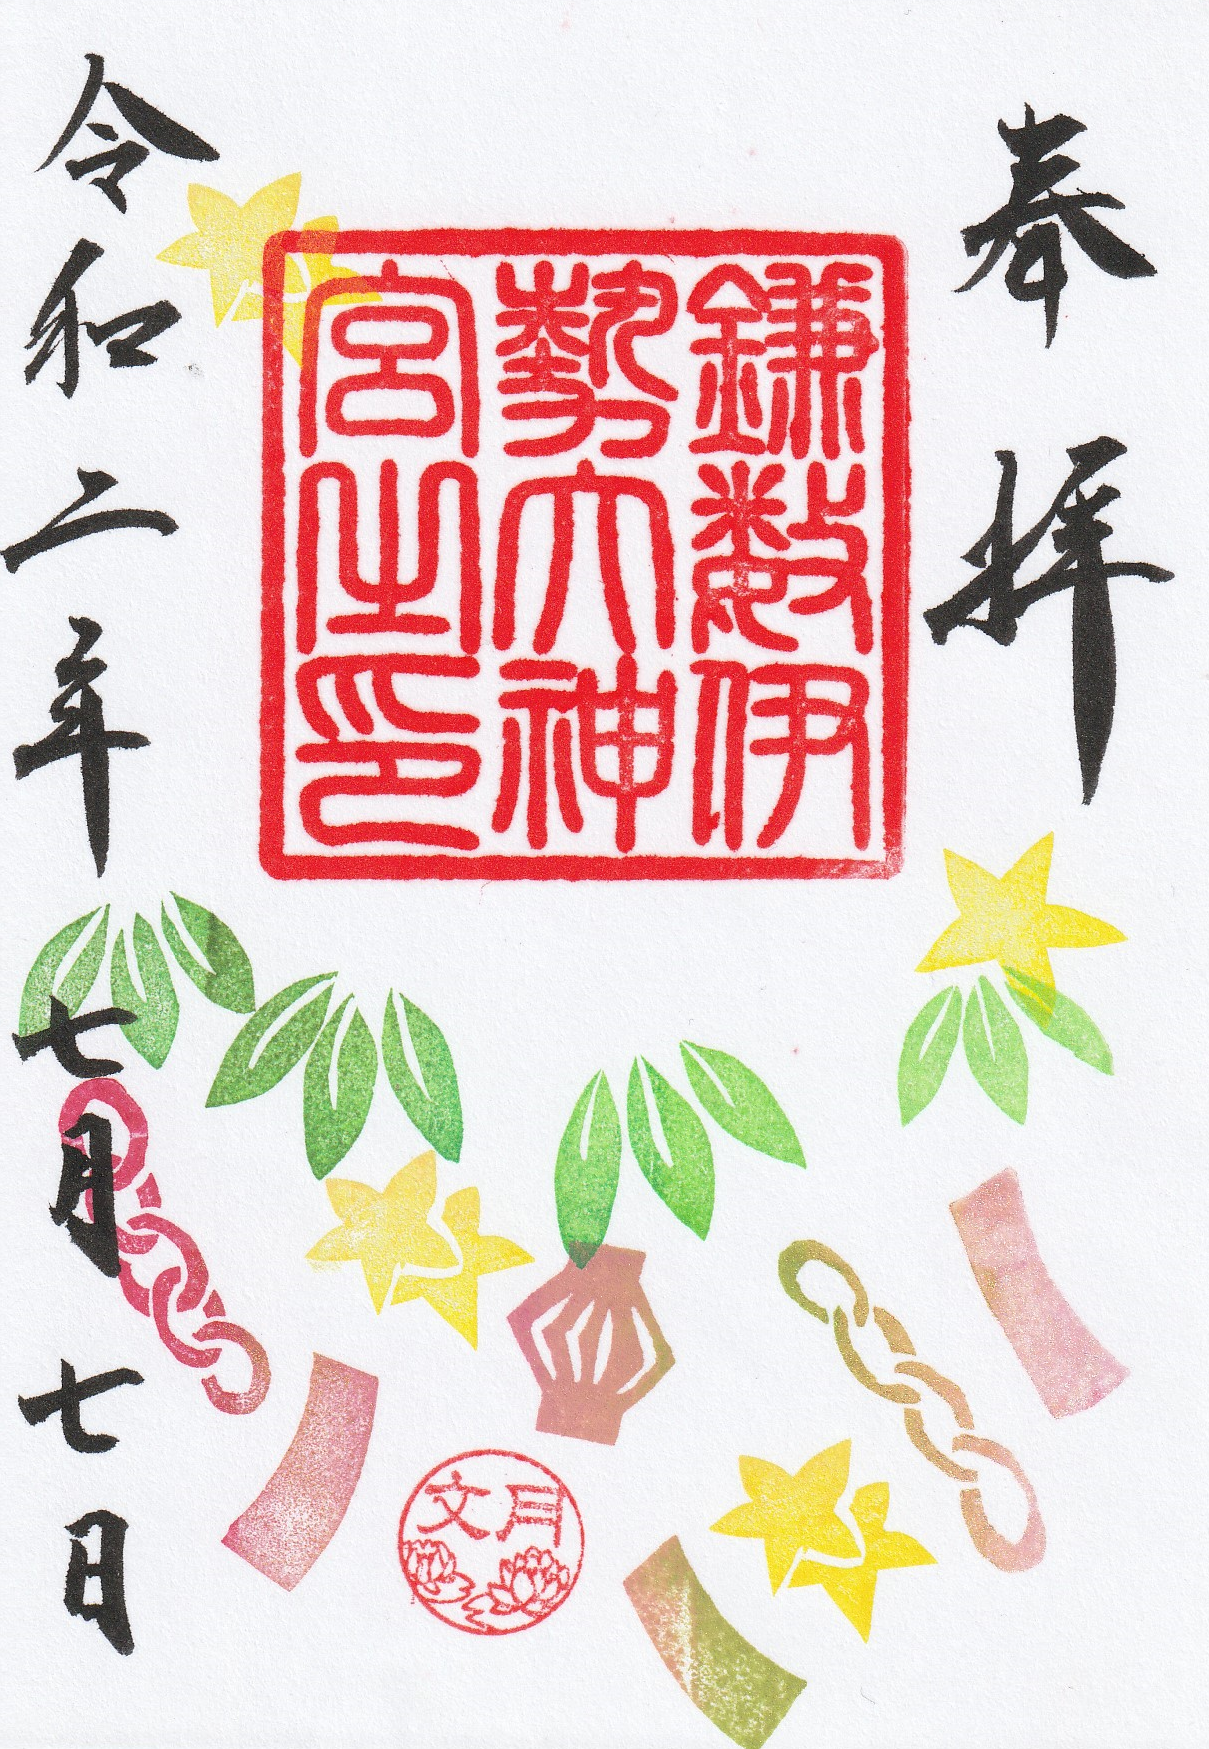 奉拝
鎌数伊
勢大神
宮之印
令和二年七月七日
文月